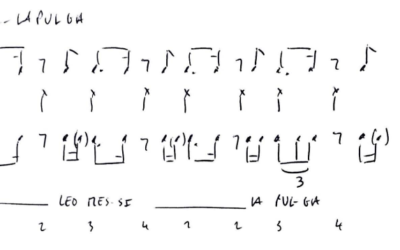 - LA PULGA
3
LEO MES-SI LA PUL-GA
2 3 4 2 3 4